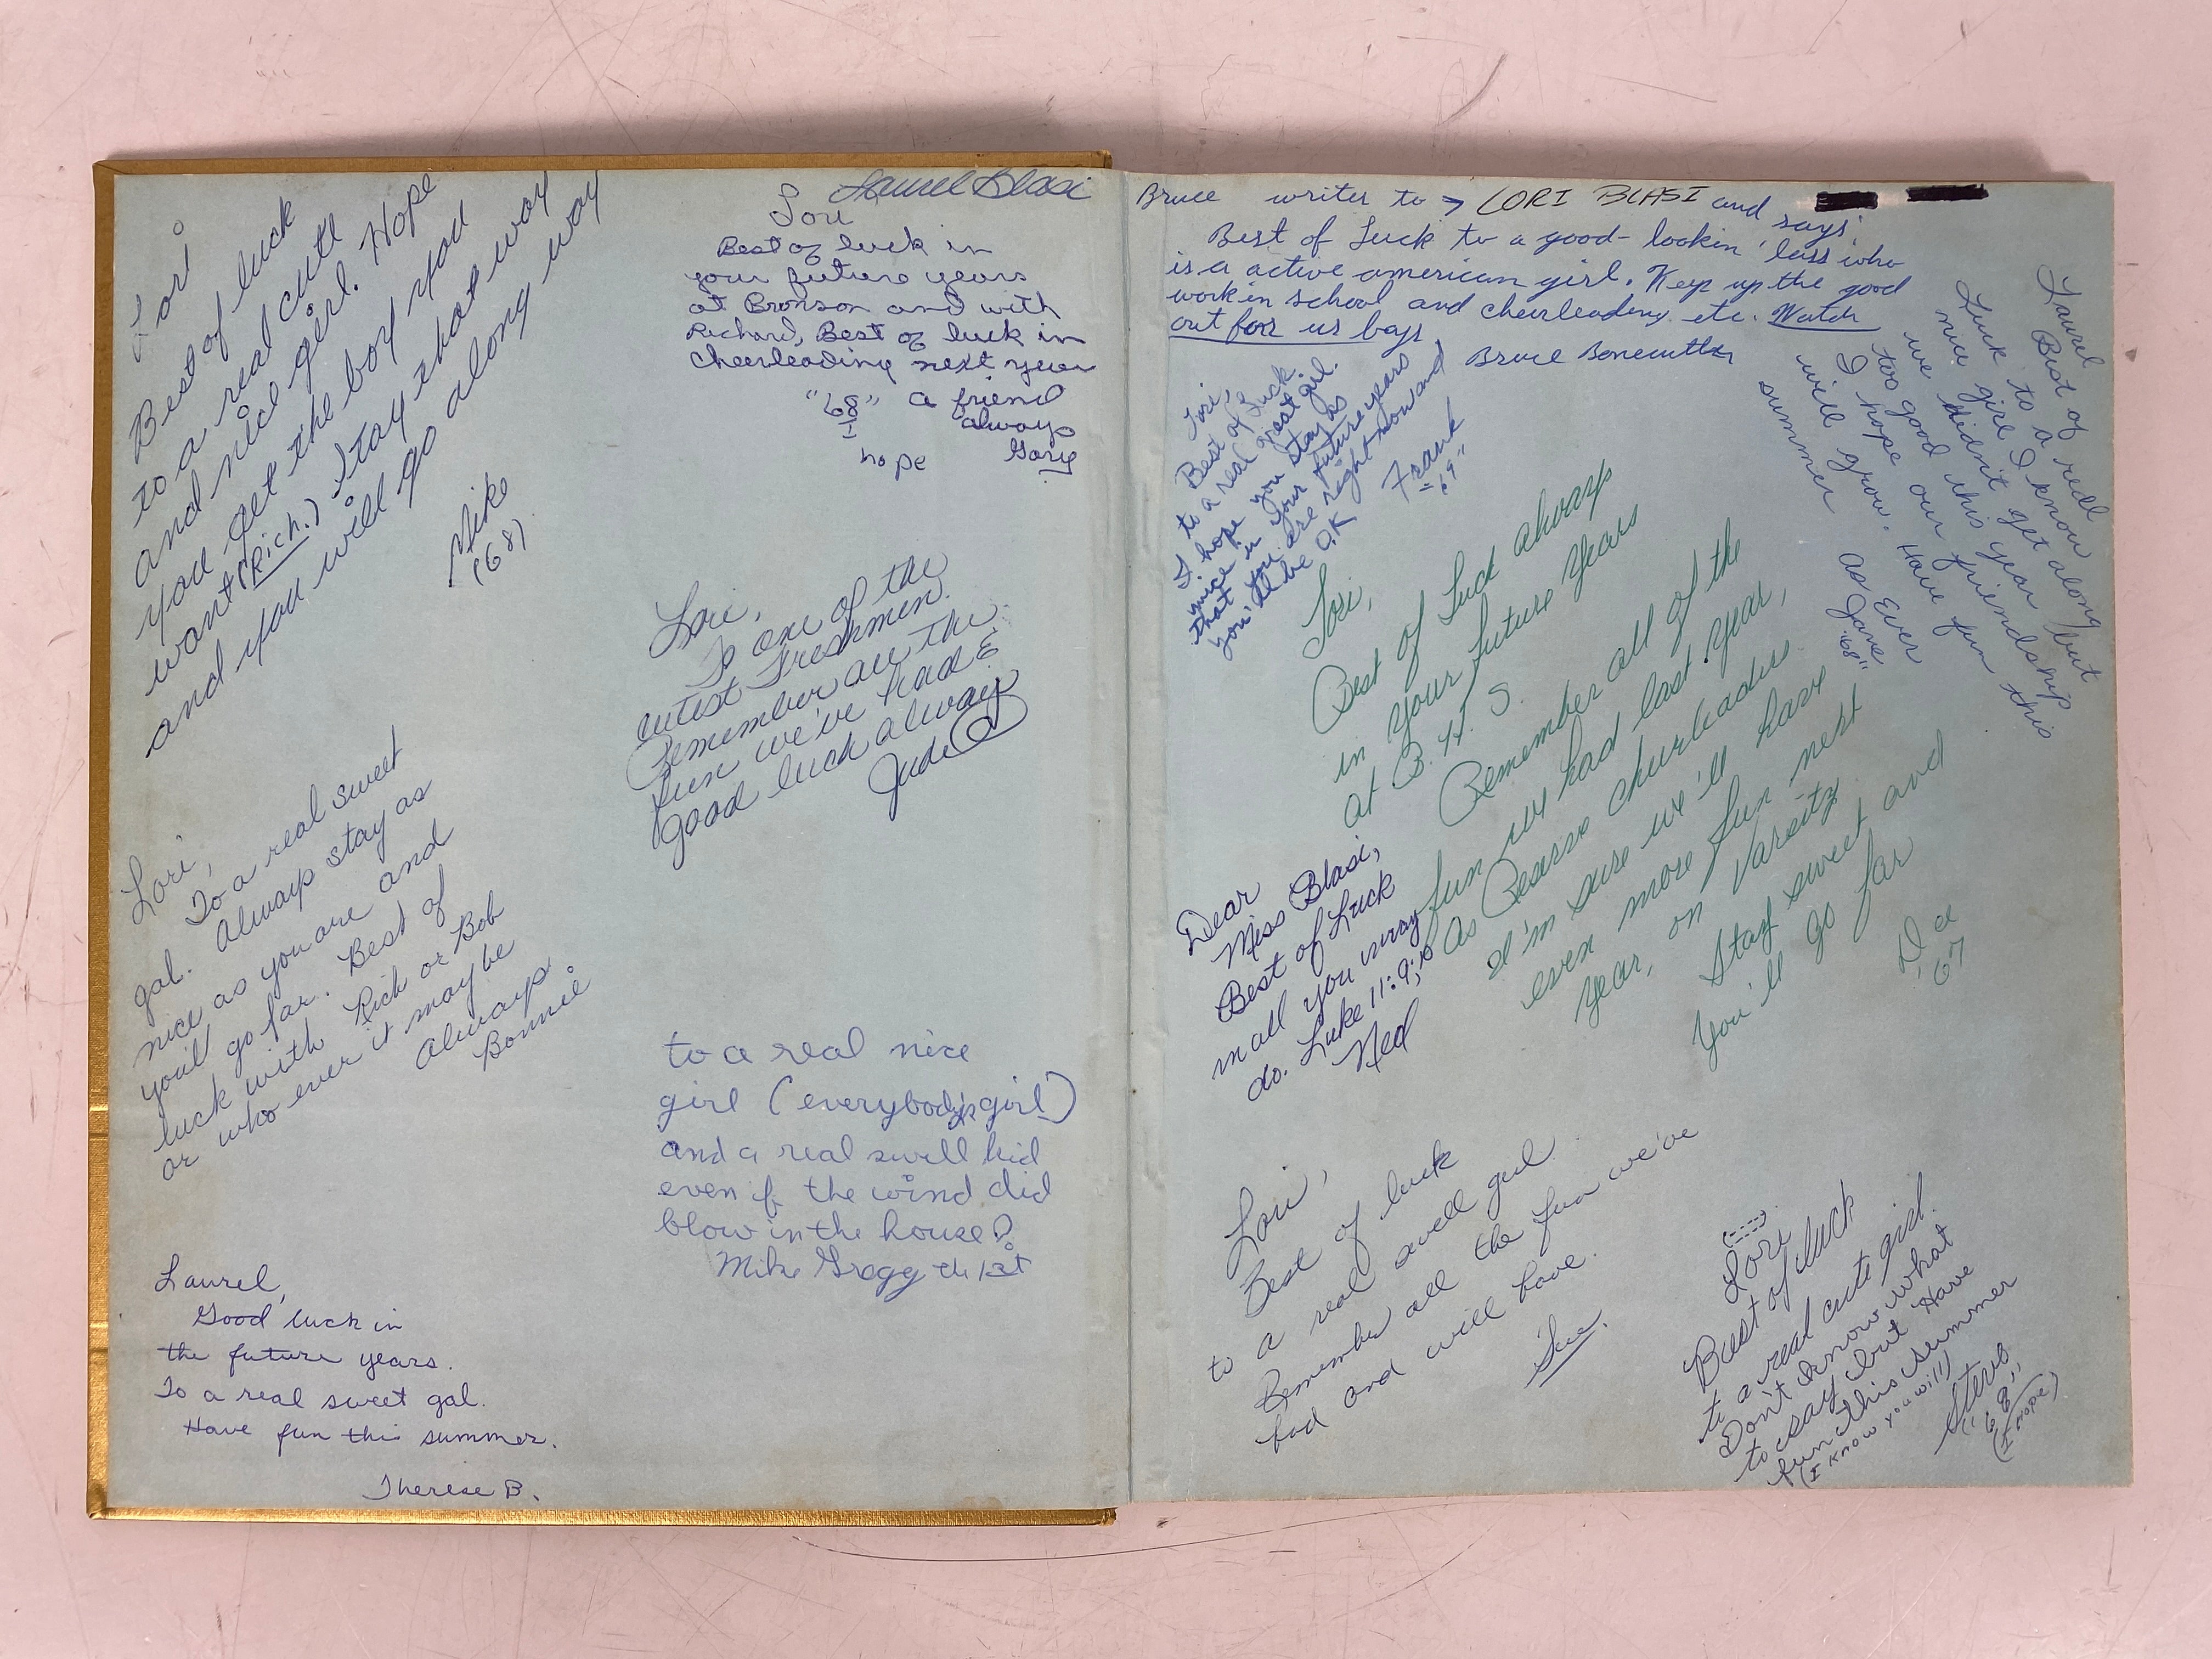 Laurel Blasi
Lori
Best of luck
to a real cute
and nice girl. Hope
you get the boy you
want (Rich.) Stay that way
and you will go along way
Mike
(68)
Lori
Best of luck in
your future years
at Bronson and with
Richard, Best of luck in
cheerleading next year
"68" a friend
always
hope Gary
Lori,
To one of the
cutest Freshmen.
Remember all the
fun we've had &
good luck always
Jude
Lori,
To a real sweet
gal. Always stay as
nice as you are and
you'll go far. Best of
luck with Rich or Bob
or who ever it may be
Always
Bonnie
to a real nice
girl (everybody's girl)
and a real swell kid
even if the wind did
blow in the house?
Mike Gregg the 1st
Laurel,
Good luck in
the future years.
To a real sweet gal.
Have fun this summer.
Therese B.
Bruce writer to → LORI BLASI and says
Best of Luck to a good-lookin' lass who
is a active american girl. Keep up the good
work in school and cheerleading etc. Watch
out for us boys
Bruce
Lori,
Best of Luck.
to a real great girl.
I hope you stay as
nice in your future years
that you are right now and
you'll be O.K
Frank
"69"
Laurel
Best of
Luck to a real
nice girl I know
we didn't get along
too good this year but
I hope our friendship
will grow. Have fun this
summer
As Ever
Jane
"68"
Lori,
Best of Luck always
in your future years
at B.H.S.
Remember all of the
fun we had last year,
as Pearse cheerleaders.
I'm sure we'll have
even more fun next
year, on Varsity.
Stay sweet and
you'll go far
Dee
'67
Dear
Miss Blasi,
Best of Luck
in all you may
do. Luke 11:9,10
Ned
Lori,
Best of luck
to a real swell girl.
Remember all the fun we've
had and will have.
Sue.
Lori
Best of luck
to a real cute girl.
Don't know what
to say but Have
fun this summer
(I know you will)
Steve
"68"
(I hope)